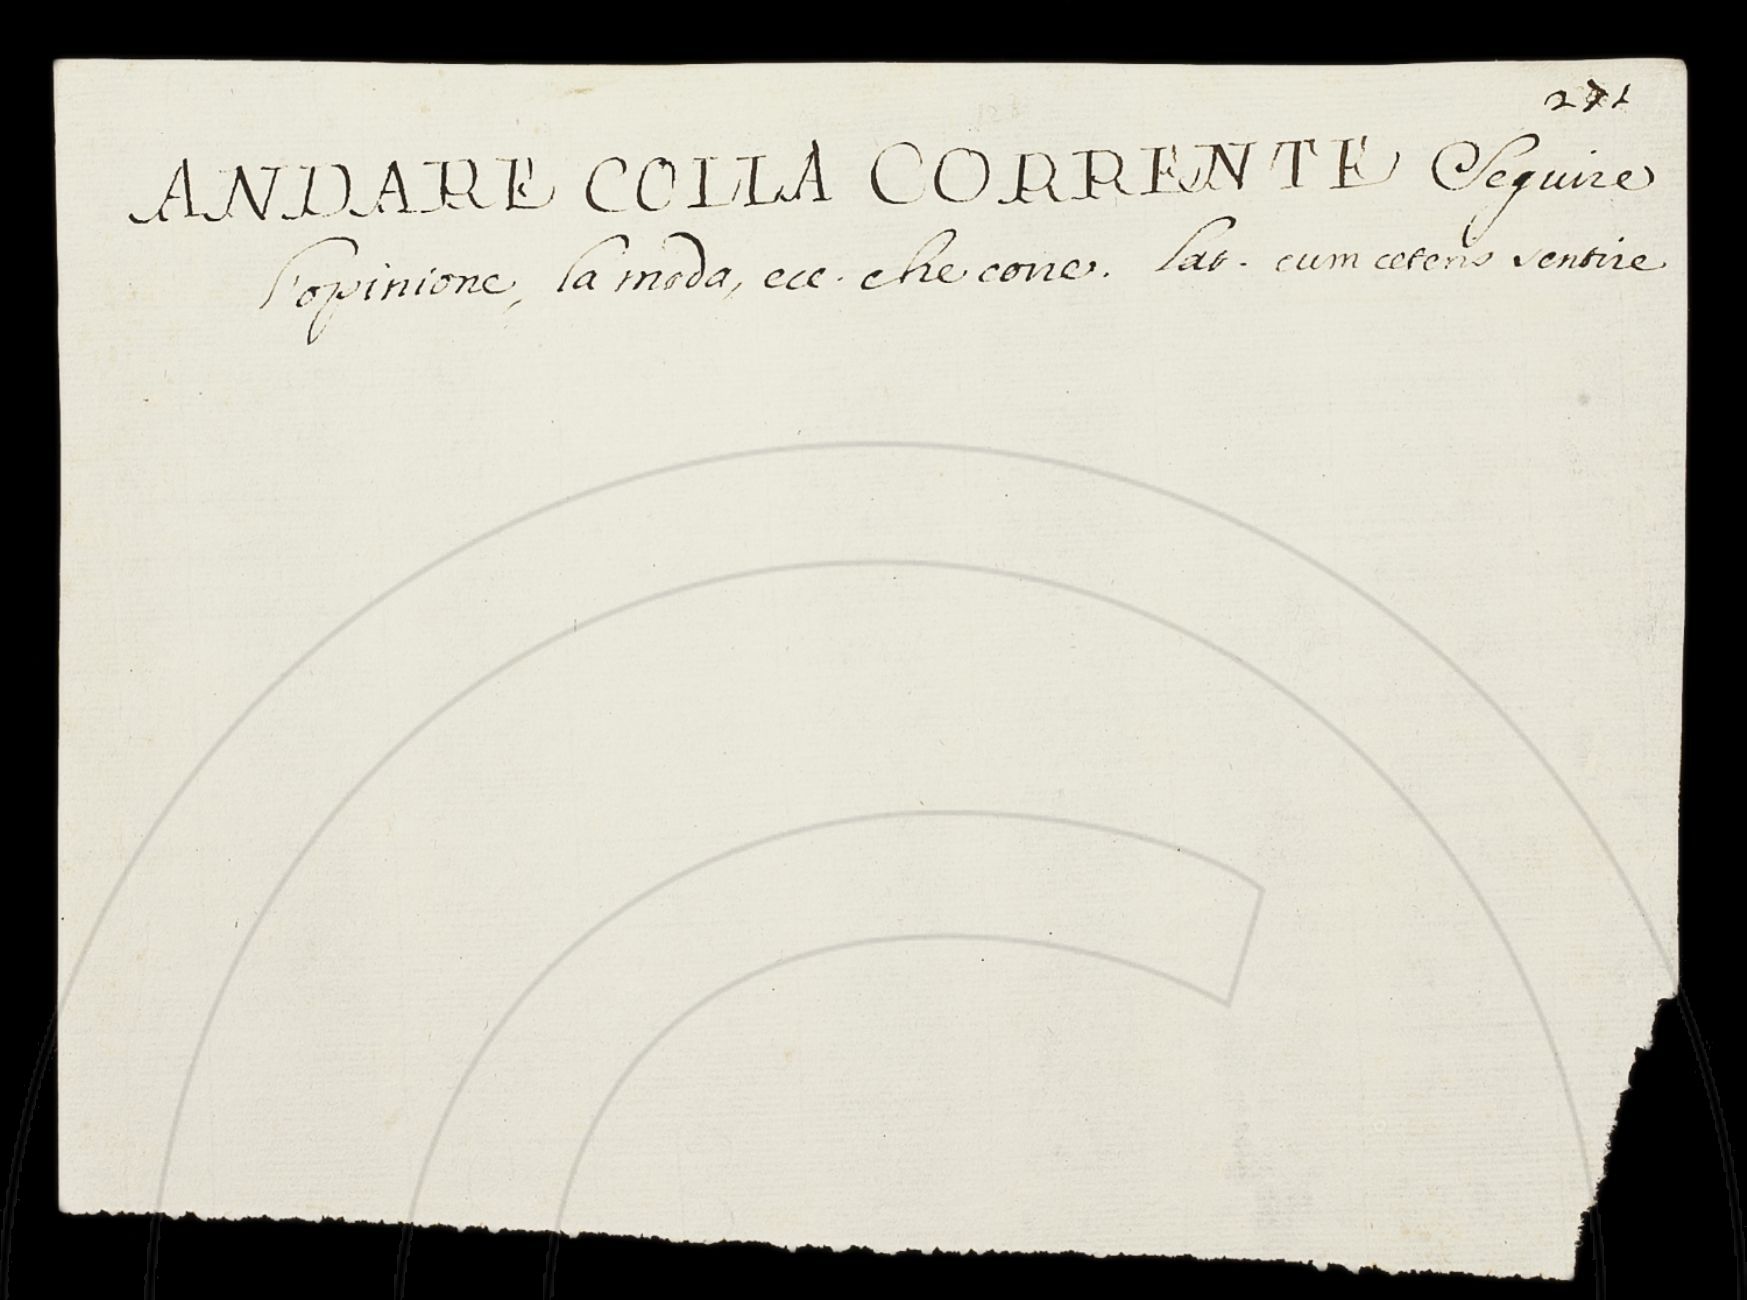 271
ANDARE COLLA CORRENTE Seguire
l'opinione, la moda, ecc. che corre. Lat. cum ceteris sentire